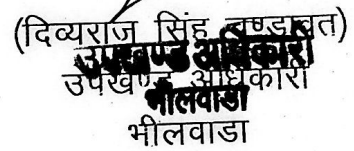 (दिव्यराज सिंह चुण्डावत)
उपखण्ड अधिकारी
उपखण्ड अधिकारी
भीलवाडा
भीलवाडा